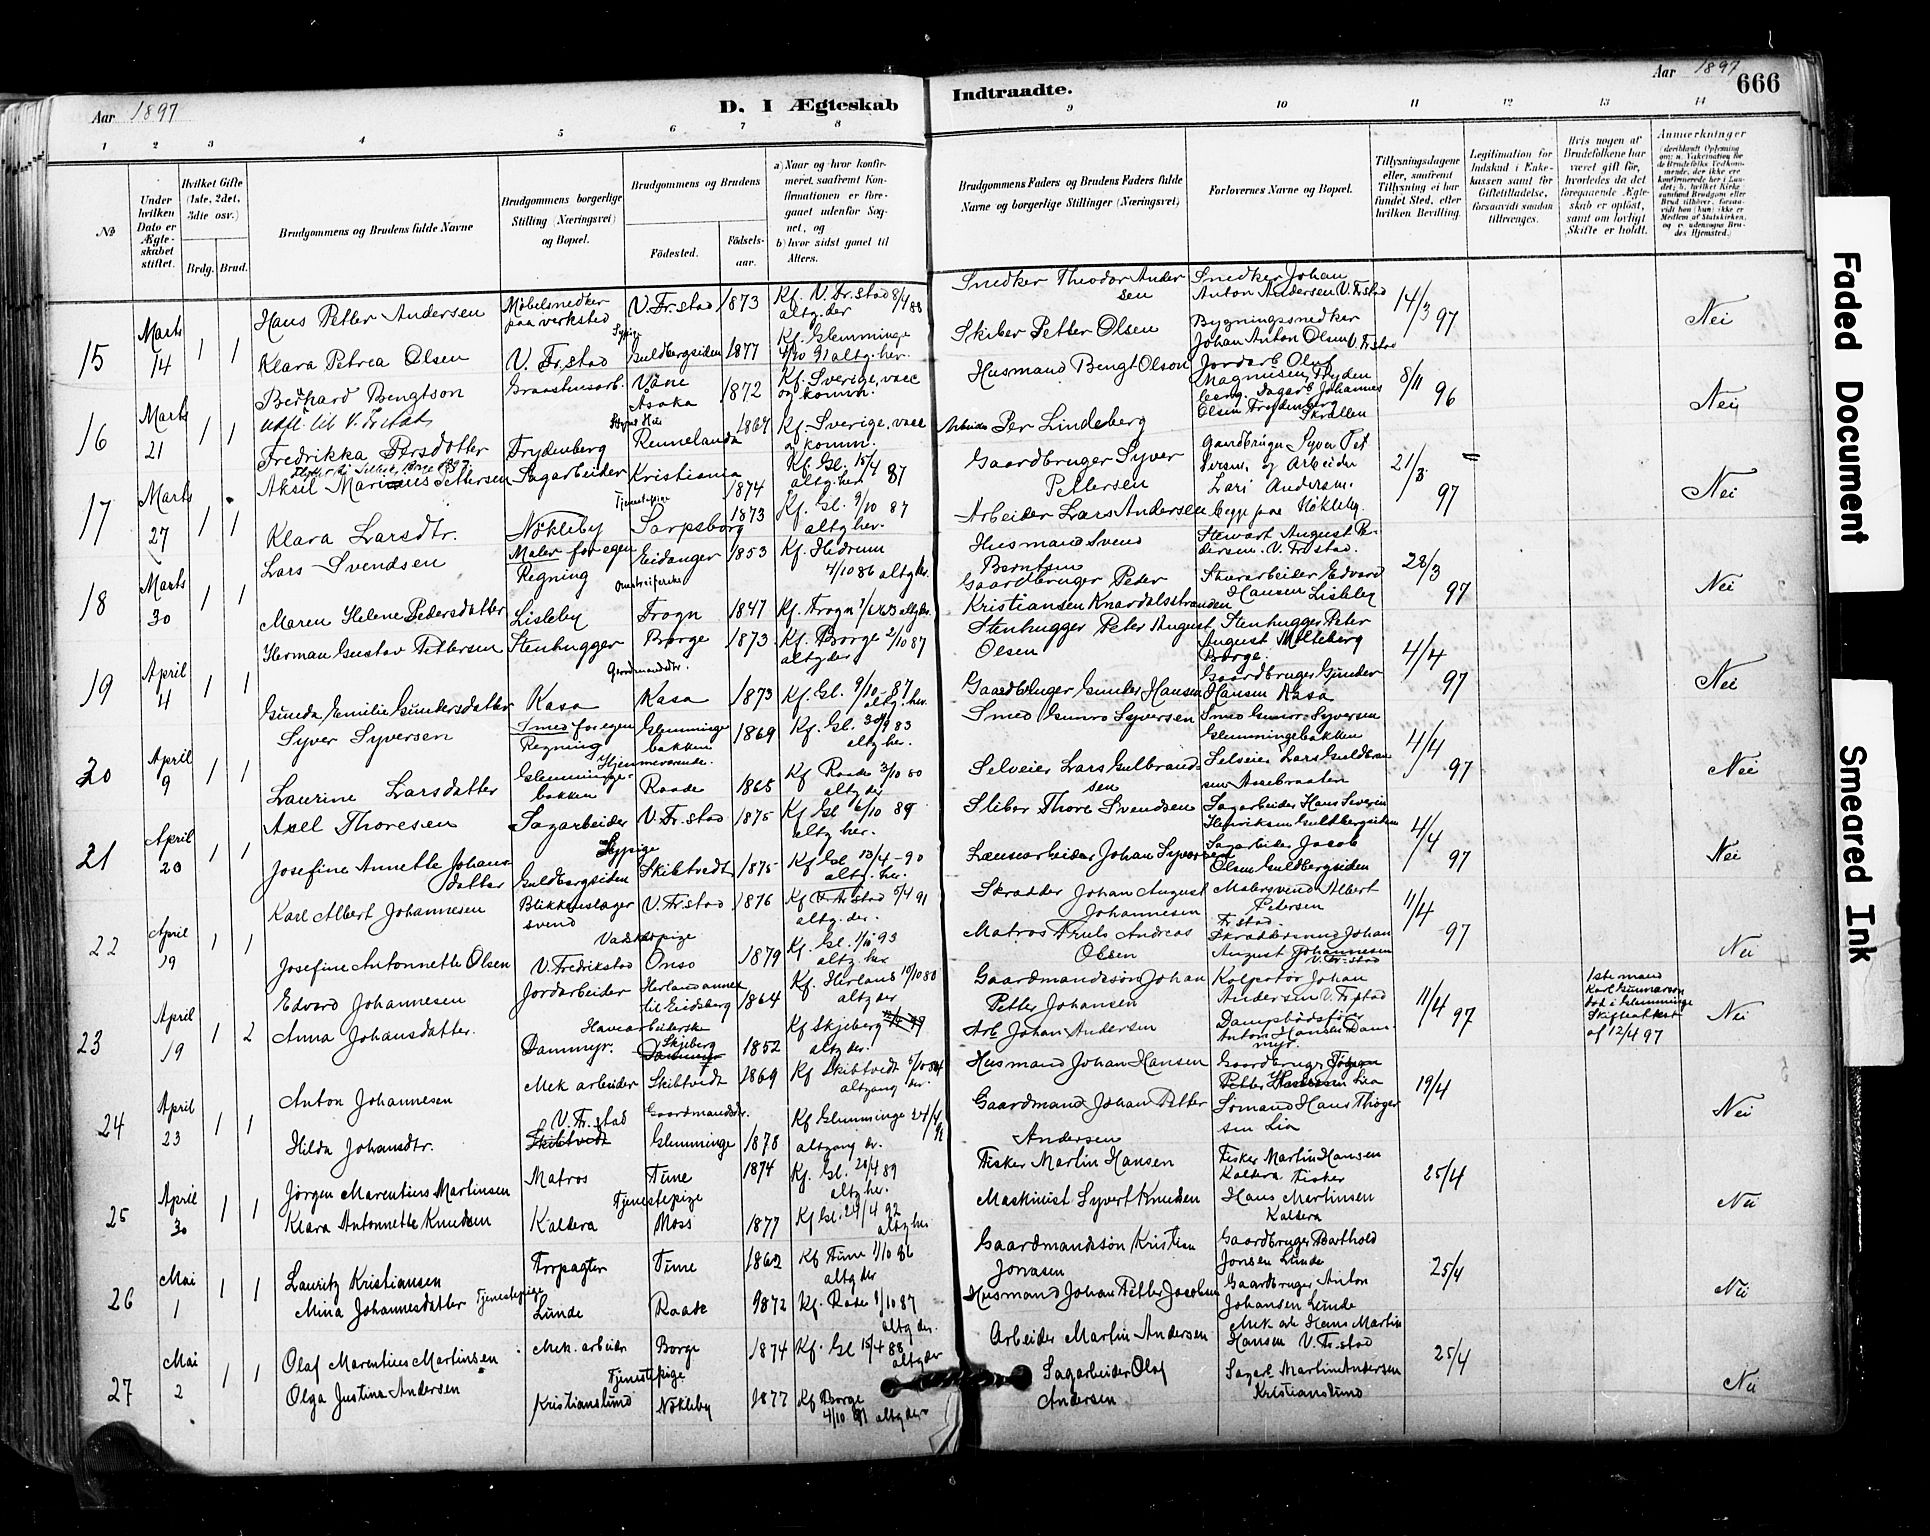 Aar 1897
D. I Ægteskab Indtraadte.
Aar 1897 666
1 2 3 4 5 6 7 8 9 10 11 12 13 14
№
Under hvilken Dato er Ægteskabet stiftet.
Hvilket Gifte (1ste, 2det, 3die osv.)
Brdg. Brud.
Brudgommens og Brudens fulde Navne
Brudgommens borgerlige Stilling (Næringsvei) og Bopæl.
Brudgommens og Brudens
Fødested. Fødselsaar.
a) Naar og hvor konfirmeret, saafremt Konfirmationen er foregaaet udenfor Sognet, og
b) hvor sidst gaaet til Alters.
Brudgommens Faders og Brudens Faders fulde Navne og borgerlige Stillinger (Næringsvei)
Forlovernes Navne og Bopæl.
Tillysningsdagene eller, saafremt Tillysning ei har fundet Sted, efter hvilken Bevilling.
Legitimation for Indskud i Enkekassen samt for Giftetilladelse, forsaavidt saadan tiltrænges.
Hvis nogen af Brudefolkene har været gift før, hvorledes da det foregaaende Ægteskab er opløst, samt om lovligt Skifte er holdt.
Anmærkninger
15 Marts 14 1 1
Hans Petter Andersen Møbelsnedker paa verksted V. Fr.stad 1873 Kf. V. Fr.stad 8/4 88 altg. der
Snedker Theodor Andersen Snedker Johan Anton Andersen V. Fr.stad 14/3 97 Nei
Klara Petrea Olsen Sypige V. Fr.stad Guldbergsiden 1877 Kf. Glemminge 4/10 91 altg. her.
Skiber Petter Olsen Bygningssnedker Johan Anton Olsen V. Fr.stad
16 Marts 21 1 1
Berhard Bengtson Graastensarb. Väne Åsaka 1872 Kf. Sverige, vacc og komm.
udfl. til V. Fr.stad
Husmand Bengt Olson Jordarb. Oluf Magnusen Trydenberg. Sagarb. Johannes Olsen Trydenberg 8/11 96 Nei
Fredrikka Persdatter Trydenberg Rennelanda 1867 Kf. Sverige, vacc og komm.
Arbeider Per Lindeberg
17 Marts 27 1 1
Aksil Marinius Pettersen Sagarbeider Kristiania 1874 Kf. Gl. 15/4 87 altg. her
Gaardbruger Syver Pettersen Gaardbruger Syver Pettersen og Arbeider Lars Andersen begge paa Nökleby 21/3 97 Nei
Klara Larsdtr. Tjenestepige Nökleby Sarpsborg 1873 Kf. Gl. 9/10 87 altg her.
Arbeider Lars Andersen
18 Marts 30 1 1
Lars Svendsen Maler for egen Regning Eidanger 1853 Kf. Hedrum 4/10 86 altg her.
Husmand Svend Berntsen Stewart August Pedersen. V. Fr.stad. 28/3 97 Nei
Maren Helene Pedersdatter Omstreiferske Lisleby Frogn 1847 Kf. Frogn altg her.
Gaardbruger Peder Kristiansen Knardalsstranden Edvard Hansen Lisleby
19 April 4 1 1
Herman Gustav Pettersen Stenhugger Borge 1873 Kf. Borge 2/10 87 altg der
Stenhugger Peter August Olsen Stenhugger Peter August Borge. 4/4 97 Nei
Gunda Emilie Gundersdatter Gaardmandsdtr. Kasa Kasa 1873 Kf. Gl. 9/10 - 87 altg. her
Gaardbruger Gunder Hansen Gaardbruger Gunder Hansen Kasa
20 April 9 1 1
Syver Syversen Smed for egen Regning Glemminge bakken 1869 Kf. Gl. 83 altg her.
Smed Syversen Smed Syversen Glemmingebakken 4/4 97 Nei
Laurine Larsdatter Hjemmeværende. Glemminge bakken Raade 1865 Kf Raade 3/10 80 altg der
Selveier Lars Gulbrandsen Selveier Lars Guldbrandsen
21 April 20 1 1
Axel Thoresen Sagarbeider V. Fr.stad 1875 Kf. Gl 6/10 89 altg her.
Skiber Thore Svendsen Sagarbeider Hans Severin Henriksen Guldbergsiden 4/4 97 Nei
Josefine Annette Johansdatter Sypige Guldbergsiden Skibtvedt 1875 Kf Gl 13/4 - 90 altg. her.
Lænsearbeider Johan Syversen Sagarbeider Jacob Olsen Guldbergsiden
22 April 19 1 1
Karl Albert Johannesen Blikkenslager svend V. Fr.stad 1876 Kf V. Fr.stad 5/4 91 altg. der.
Skrædder Johan August Johannesen Malersvend Albert Petersen Fr.stad. 11/4 97 Nei
Josefine Antonnette Olsen V. Fredrikstad Onsø 1879 Kf. Gl. 93 altg. her
Matros Andreas Olsen Skræddersvend Johan August Johannesen V. Fr.stad
23 April 19 1 2
Edvard Johannesen Jordarbeider Herland annex til Eidsberg 1864 Kf. Herland 10/10 80 altg der
Gaardmandssøn Johan Petter Johansen Kolportør Johan Andersen V. Frstad 11/4 97
1ste mand Karl Gunnarson død i Glemminge Skifteattest af 12/4 97 Nei
Anna Johansdatter. Havearbeiderske Dammyr. Skjeberg 1852 Kf Skjeberg altg der.
Arb. Johan Andersen Dampbådsfører Anton Hansen Dammyr.
24 April 23 1 1
Anton Johannesen Mek arbeider Skibtvedt 1869 Kf Skibtvedt 5/10 84 altgang der.
Husmand Johan Hansen Gaardbruger Lia 19/4 Nei
Hilda Johansdtr. Gaardmandsdtr. V. Fr. stad Skibtvedt Glemminge 1878 Kf Glemminge 24/4 altgang der.
Gaardmand Johan Petter Andersen Sömand Hans Thøgersen Lia
25 April 30 1 1
Jörgen Marentius Martinsen Matros Tune 1874 Kf. Gl. 28/4 89 altg her.
Fisker Martin Hansen Fisker Martin Hansen Kaldera 25/4 Nei
Klara Antonnette Knudsen Tjenestepige Kaldera Moss 1877 Kf Gl. 24/4 92 altg her
Maskinist Syvert Knudsen Fisker Hans Martinsen Kaldera
26 Mai 1 1 1
Lauritz Kristiansen Forpagter Tune 1862 Kf Tune 1/10 86 altg der
Gaardmandssön Kristian Jonasen Gaardbruger Barthold Jonsen Lunde 25/4 Nei
Mina Johannesdatter Tjenestepige Lunde Raade 1872 Kf. Rade 1/10 87 altg der.
Husmand Johan Petter Jacobsen Gaardbruger Anton Johansen Lunde
27 Mai 2 1 1
Olaf Marentius Martinsen Mek. arbeider Borge 1874 Kf. Gl 15/4 88 altg der
Arbeider Martin Andersen Mek arb Hans Martin Hansen V. Fr.stad 25/4 Nei
Olga Justina Andersen Tjenestepige Kristianslund Nökleby 1877 Kf Borge 4/10 91 altg der
Sagarbeider Olaf Andersen Sagarb. Martin Andersen Kristianslund
Faded Document
Smeared Ink